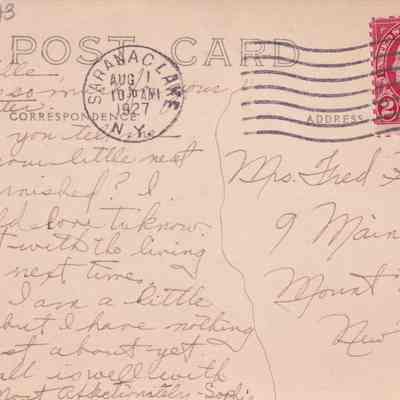 POST CARD
SARANAC LAKE
AUG 1
10 AM
1927
N.Y.
CORRESPONDENCE
ADDRESS
2
so
you
your little nest
furnished? I
love to know.
with the living
next time.
I am a little
but I have nothing
about yet
all is well with
Most Affectionately - Sophi
Mrs. Fred
9 Main
Mount
New